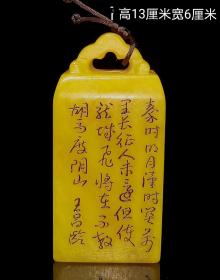 高13厘米宽6厘米
秦时明月漢时関万
里长征人未還但使
龍城飞将在不教
胡马度阴山 王昌龄